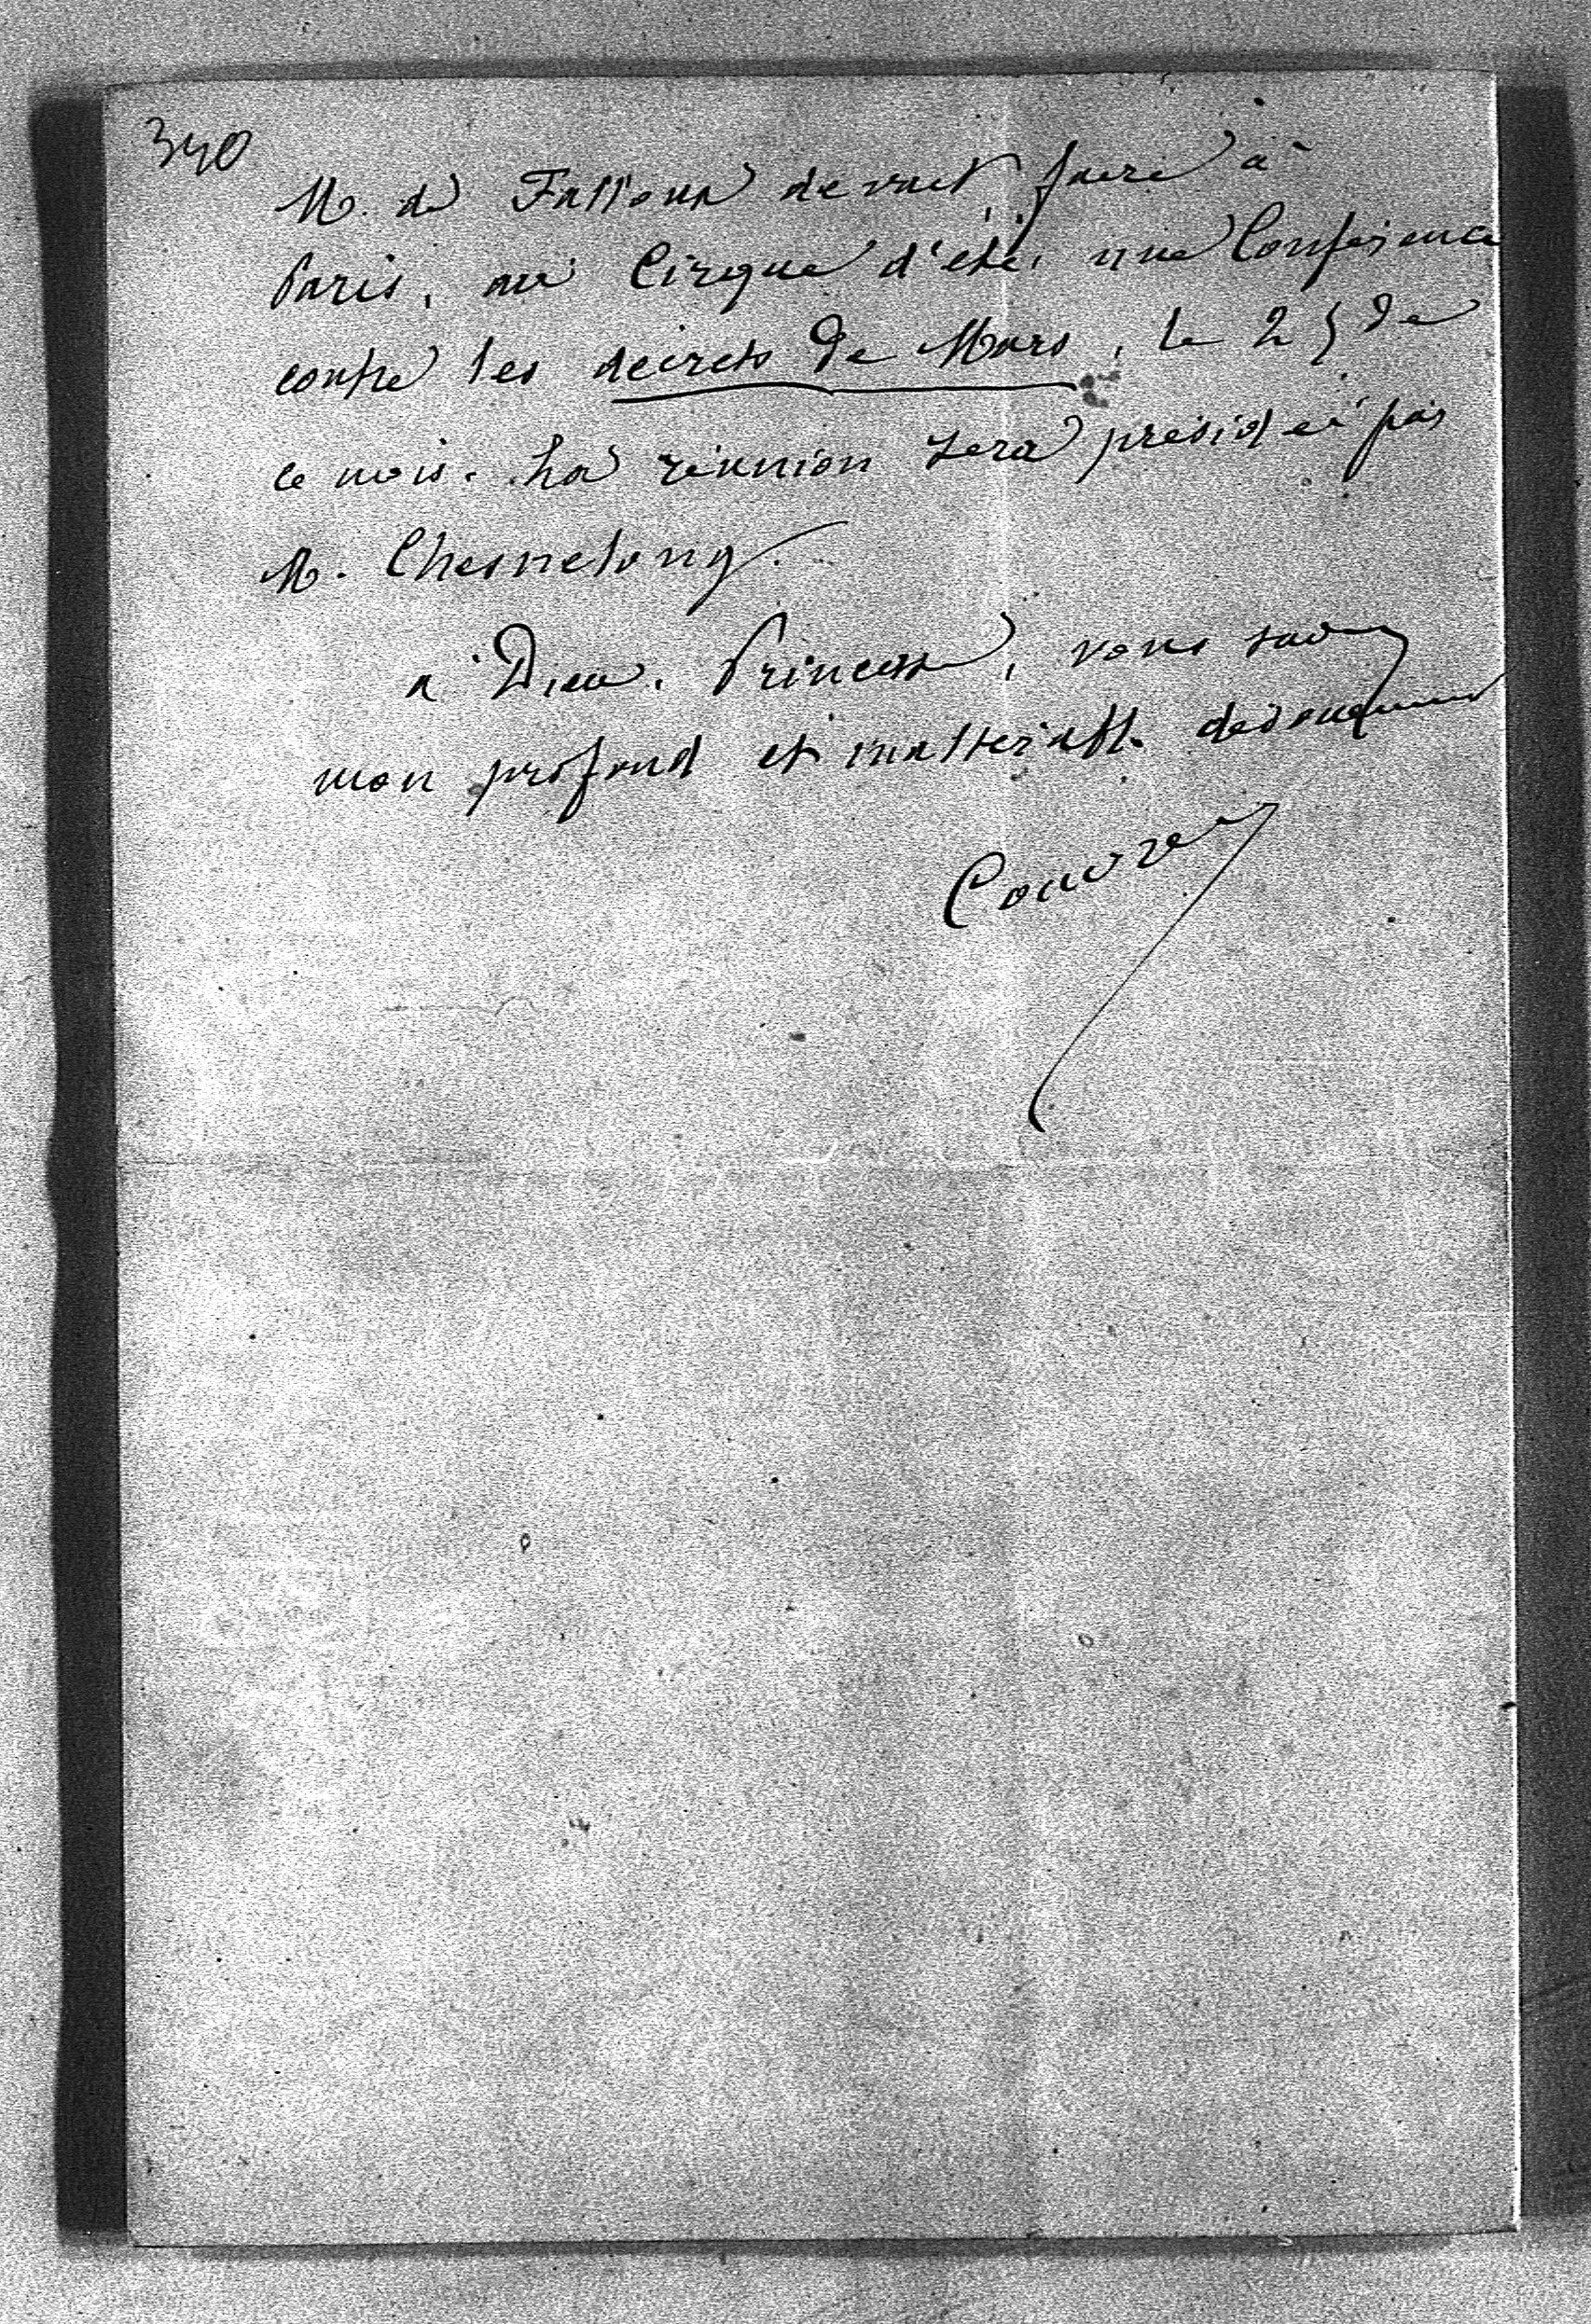 340
M. de Falloux devait faire à
Paris, au Cirque d'été, une Conférence
contre les décrets de Mars, le 25 de
ce mois. La réunion sera présidée par
M. Chesnelong.
à Dieu, Princesse, vous savez
mon profond et inaltérable dévouement